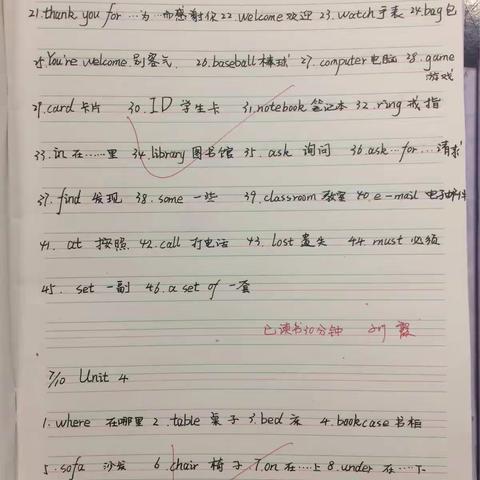 21.thank you for …为…而感谢你 22.welcome 欢迎 23.watch 手表 24.bag 包
25.You're welcome.别客气. 26.baseball 棒球 27.computer 电脑 28.game 游戏
29.card 卡片 30.ID 学生卡 31.notebook 笔记本 32.ring 戒指
33.in 在……里 34.library 图书馆 35.ask 询问 36.ask…for…请求
37.find 发现 38.some 一些 39.classroom 教室 40.e-mail 电子邮件
41.at 按照 42.call 打电话 43.lost 遗失 44.must 必须
45.set 一副 46.a set of 一套
已读书30分钟
7/10 Unit 4
1.where 在哪里 2.table 桌子 3.bed 床 4.bookcase 书柜
5.sofa 沙发 6.chair 椅子 7.on 在…上 8.under 在…下